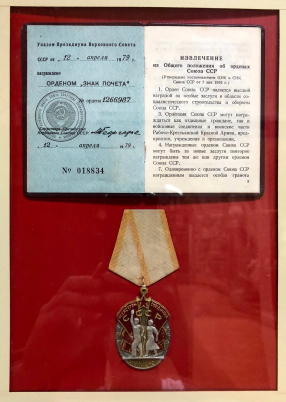 Указом Президиума Верховного Совета
СССР от "12" апреля 1979 г.
награжден
ОРДЕНОМ „ЗНАК ПОЧЕТА"
№ ордена 1266987
Секретарь Президиума
Верховного Совета СССР
"12" апреля 1979 г.
№ 018834
ИЗВЛЕЧЕНИЕ
из Общего положения об орденах
Союза ССР
(Утверждено постановлением ЦИК и СНК
Союза ССР от 7 мая 1936 г.)
1. Орден Союза ССР является высшей
наградой за особые заслуги в области со-
циалистического строительства и обороны
Союза ССР.
3. Орденами Союза ССР могут награж-
даться как отдельные граждане, так и
войсковые соединения и воинские части
Рабоче-Крестьянской Красной Армии, пред-
приятия, учреждения и организации.
4. Награжденные орденом Союза ССР
могут быть за новые заслуги повторно
награждены тем же или другим орденом
Союза ССР.
7. Одновременно с орденом Союза ССР
награжденным выдается особая грамота
СССР